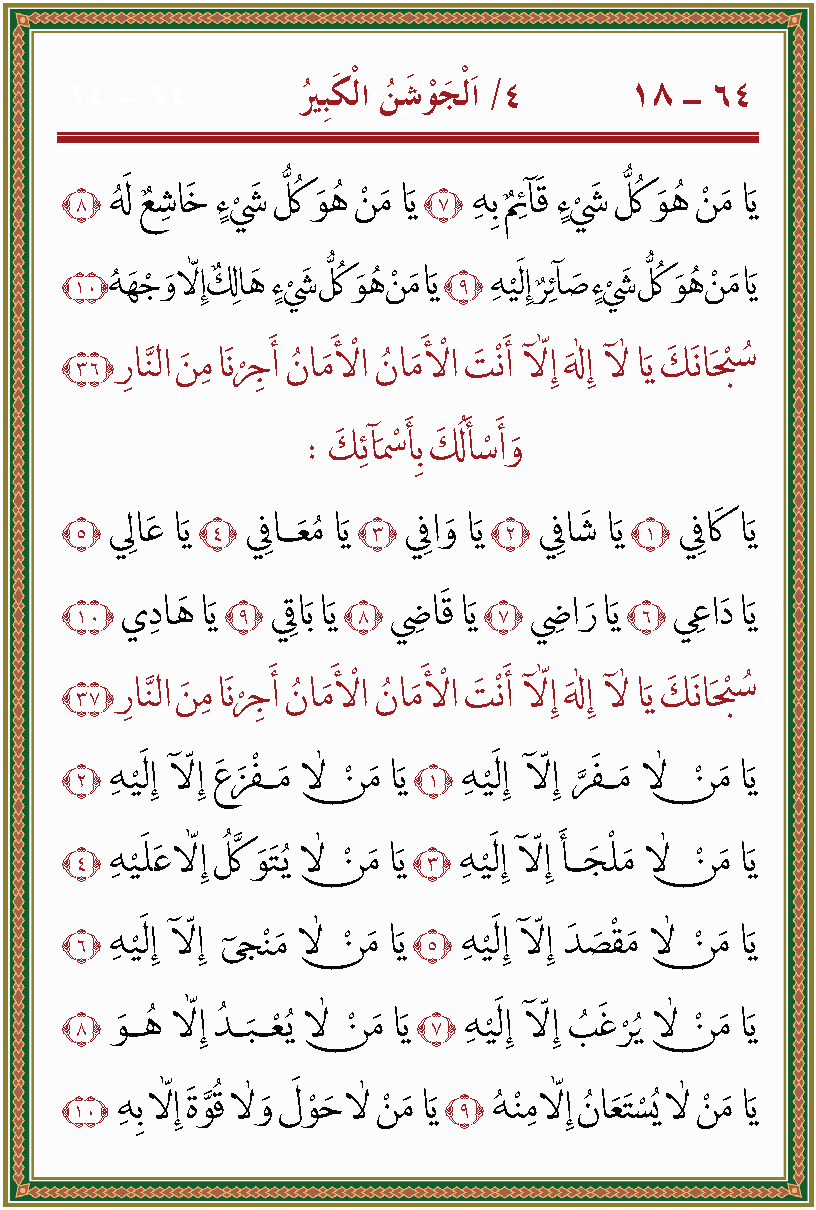 ٦٤ – ١٨ ٤/ اَلْجَوْشَنُ الْكَبِيرُ
يَا مَنْ هُوَ كُلُّ شَيْءٍ قَآئِمٌ بِهِ ﴿٧﴾ يَا مَنْ هُوَ كُلُّ شَيْءٍ خَاشِعٌ لَهُ ﴿٨﴾
يَا مَنْ هُوَ كُلُّ شَيْءٍ صَآئِرٌ إِلَيْهِ ﴿٩﴾ يَا مَنْ هُوَ كُلُّ شَيْءٍ هَالِكٌ إِلَّا وَجْهَهُ ﴿١٠﴾
سُبْحَانَكَ يَا لَآ إِلٰهَ إِلَّآ أَنْتَ الْأَمَانُ الْأَمَانُ أَجِرْنَا مِنَ النَّارِ ﴿٣٦﴾
وَأَسْأَلُكَ بِأَسْمَآئِكَ :
يَا كَافِي ﴿١﴾ يَا شَافِي ﴿٢﴾ يَا وَافِي ﴿٣﴾ يَا مُعَافِي ﴿٤﴾ يَا عَالِي ﴿٥﴾
يَا دَاعِي ﴿٦﴾ يَا رَاضِي ﴿٧﴾ يَا قَاضِي ﴿٨﴾ يَا بَاقِي ﴿٩﴾ يَا هَادِي ﴿١٠﴾
سُبْحَانَكَ يَا لَآ إِلٰهَ إِلَّآ أَنْتَ الْأَمَانُ الْأَمَانُ أَجِرْنَا مِنَ النَّارِ ﴿٣٧﴾
يَا مَنْ لَا مَفَرَّ إِلَّآ إِلَيْهِ ﴿١﴾ يَا مَنْ لَا مَفْزَعَ إِلَّآ إِلَيْهِ ﴿٢﴾
يَا مَنْ لَا مَلْجَأَ إِلَّآ إِلَيْهِ ﴿٣﴾ يَا مَنْ لَا يُتَوَكَّلُ إِلَّا عَلَيْهِ ﴿٤﴾
يَا مَنْ لَا مَقْصَدَ إِلَّآ إِلَيْهِ ﴿٥﴾ يَا مَنْ لَا مَنْجَىٓ إِلَّآ إِلَيْهِ ﴿٦﴾
يَا مَنْ لَا يُرْغَبُ إِلَّآ إِلَيْهِ ﴿٧﴾ يَا مَنْ لَا يُعْبَدُ إِلَّا هُوَ ﴿٨﴾
يَا مَنْ لَا يُسْتَعَانُ إِلَّا مِنْهُ ﴿٩﴾ يَا مَنْ لَا حَوْلَ وَلَا قُوَّةَ إِلَّا بِهِ ﴿١٠﴾